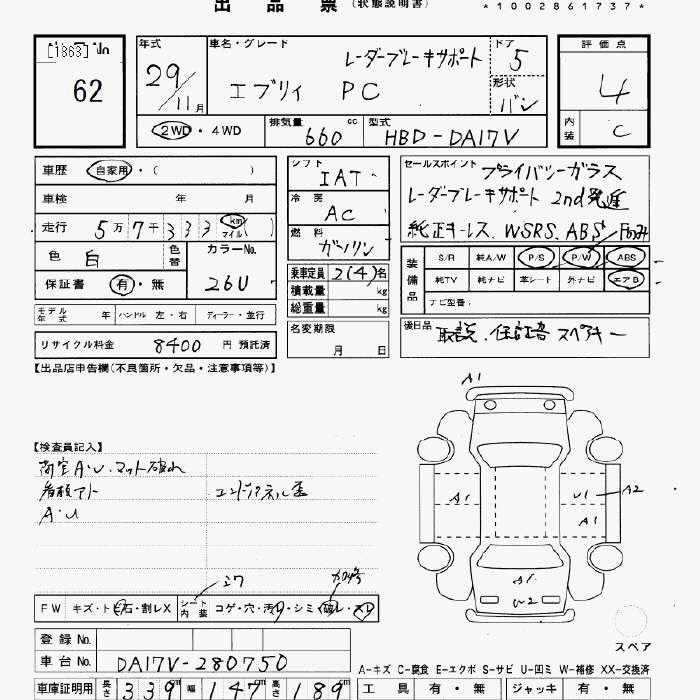 出品票(状態説明書)
*1002861737*
[1863] No
62
年式 29/11月
車名・グレード レーダーブレーキサポート
エブリィ PC
ドア 5
形状 バン
評価点 4
内装 C
2WD・4WD
排気量 660 cc
型式 HBD-DA17V
車歴 自家用・( )
車検 年 月
走行 5万7千333 km マイル ( )
色 白 色替
カラーNo. 26U
保証書 有・無
モデル年式 年 ハンドル 左・右 ディーラー・並行
リサイクル料金 8400 円 預託済
シフト IAT
冷房 AC
燃料 ガソリン
乗車定員 2(4)名
積載量 kg
総重量 kg
名変期限
月 日
セールスポイント プライバシーガラス
レーダーブレーキサポート 2nd発進
純正キーレス. WSRS. ABS
装備品
S/R 純A/W P/S P/W ABS
純TV 純ナビ 革シート 外ナビ エアB
ナビ型番:
後日品 取説.保証書 スペアキー
【出品店申告欄(不良箇所・欠品・注意事項等)】
【検査員記入】
荷室A・U.マット破れ
看板アト エンドパネル歪
A・U
A1
A1
U1
A2
A1
A1
W2
スペア
FW キズ・ト石・割レX シート内装 コゲ・穴・汚レ・シミ・破レ・スレ
登録No.
車台No. DA17V-280750
A-キズ C-腐食 E-エクボ S-サビ U-凹ミ W-補修 XX-交換済
車庫証明用 長さ 339cm 幅 147cm 高さ 189cm
工具 有・無 ジャッキ 有・無